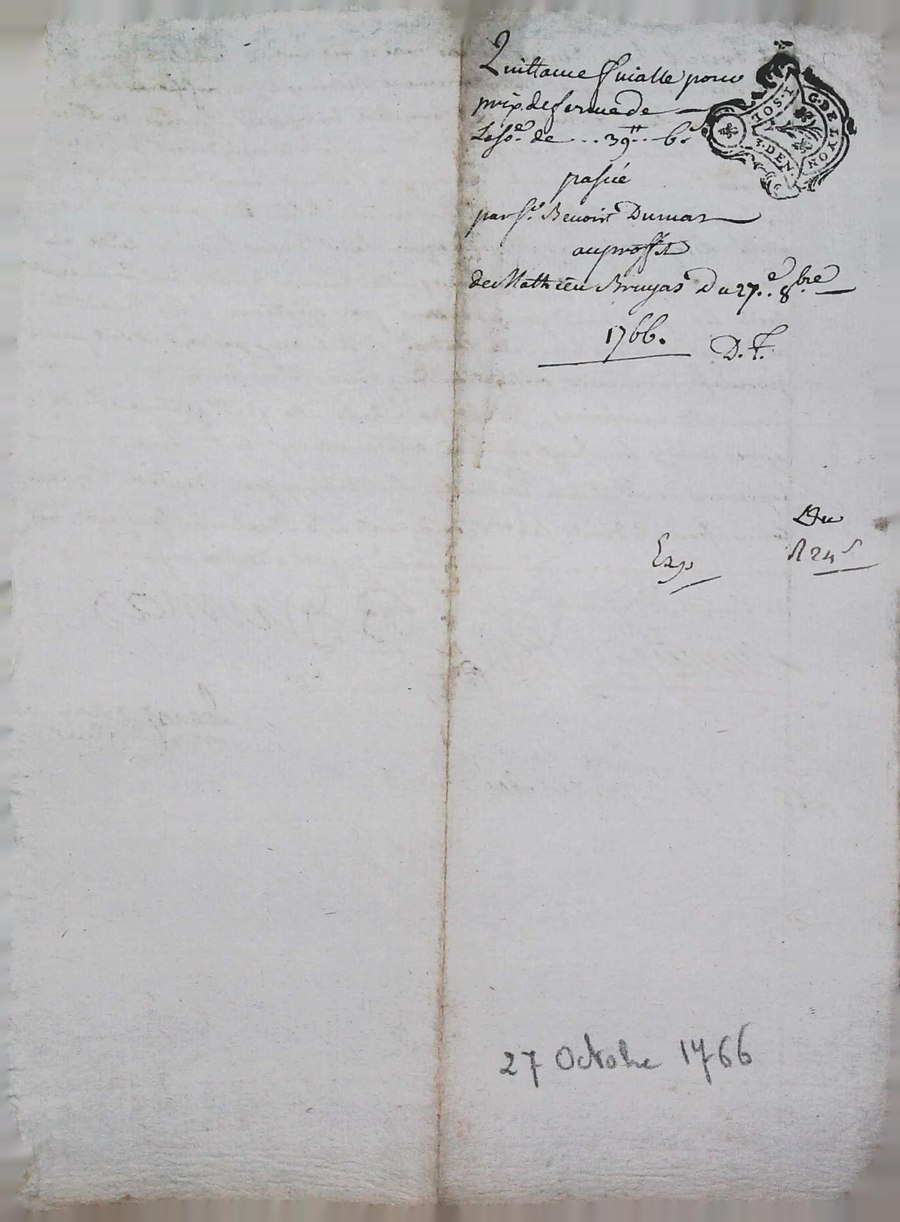 Quittance finalle pour
prix de ferme de
la so.e de ... 39.tt.. 6.s
passée
par s.r Benoist Dumas
au proffit
de Mathieu Bruyas Du 27.e 8bre
1766. D. F.
G. DE LYON
1. SOL
4. DEN
Du
24 s
Exp
27 Octobre 1766